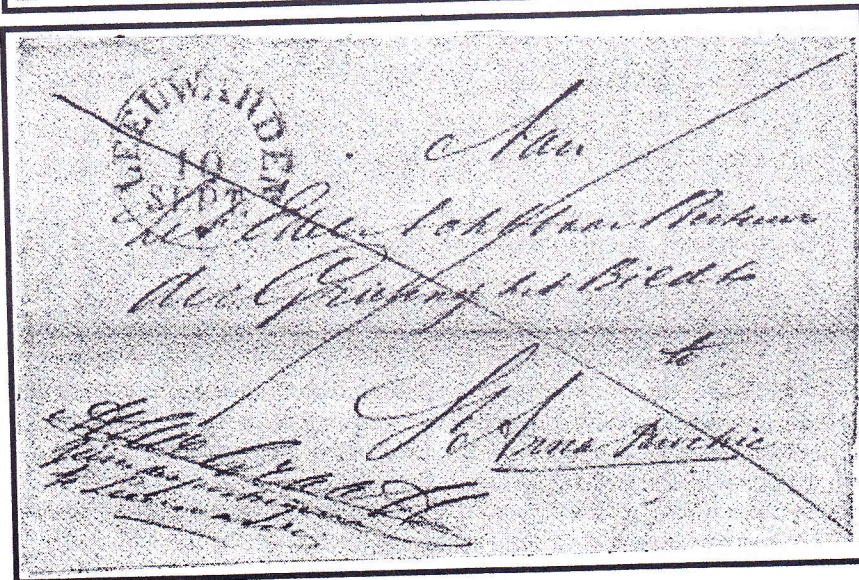 LEEUWARDEN
10
SEPT.
Aan
het Edel Achtbaar Bestuur
der Grietenij het Bildt
te
St Anna Parochie
te Leeuwarden